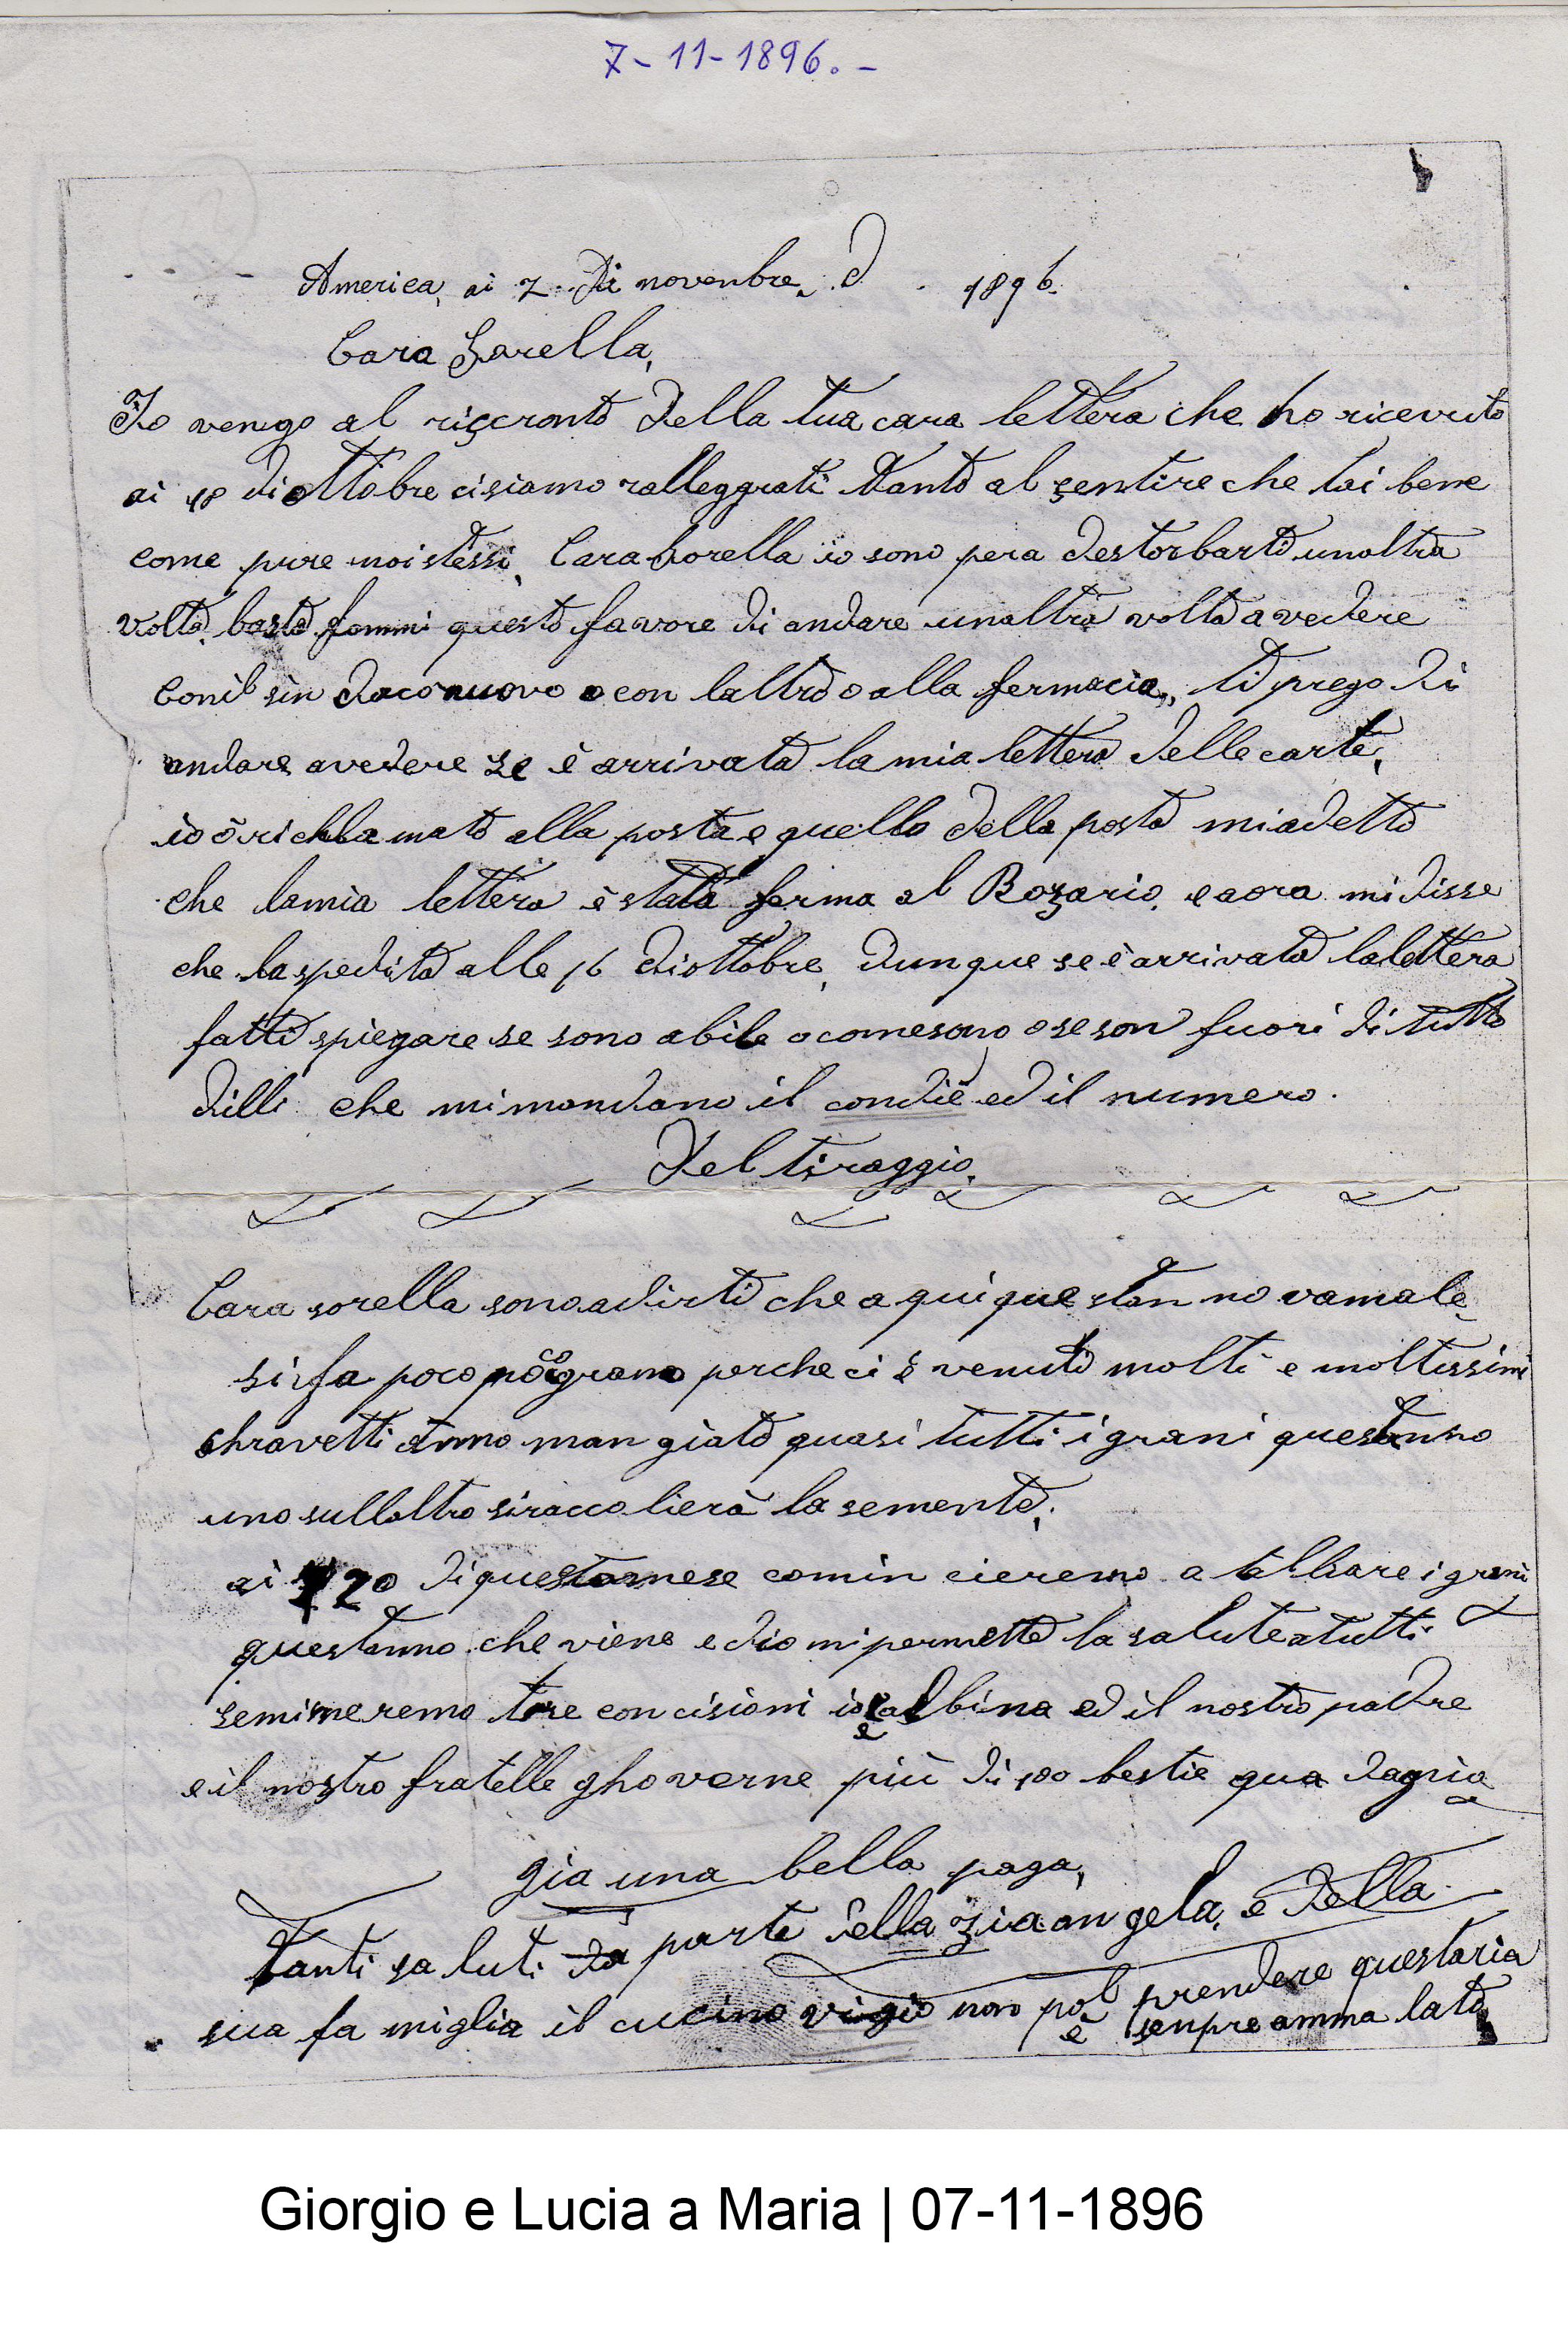 7-11-1896.-
America, ai 7 Di novenbre, d 1896.
Cara Sarella,
Io vengo al riscronto della tua cara lettera che ho ricevuto
ai 18 di ottobre cisiamo ralleggrati tanto al sentire che tai bene
come pure noi stessi, Cara sorella io sono pera destorbarti unoltra
volta, basta fammi questo favore di andare unaltra volta a vedere
Conil sin daco nuovo o con laltro o alla fermacia,, ti prego di
andare avedere se è arrivata lamia lettera delle carte,
io ò richlamato alla posta e quello della posta miadetto
che lamia lettera è stata ferma al Rozario, e aora mi disse
che laspedita alle 16 diottobre, dunque se è arrivata lalettera
fatti spiegare se sono abile o comesono o se son fuori di tutto
dilli che mimandano il condiè ed il numero.
del tiraggio,
Cara sorella sono adirti che a qui questan no vamale,
Si fa poco poco grano perche ci è venuto molti e moltissimi
chravetti anno man giato quasi tutti i grani questanno
uno sullaltro siraccolierà la sementa,
ai 20 di questo mese comin cieremo a talliare i grani
questanno che viene e dio mi permette la salute a tutti
semineremo tre concisioni io e albina ed il nostro padre
e il nostro fratelle ghoverne più di 100 bestie qua dagnia
gia una bella paga,
Tanti saluti da parte della zia angela, e della
sua fa miglia il cucino vigio non pol prendere questaria
è senpre amma lato
Giorgio e Lucia a Maria | 07-11-1896